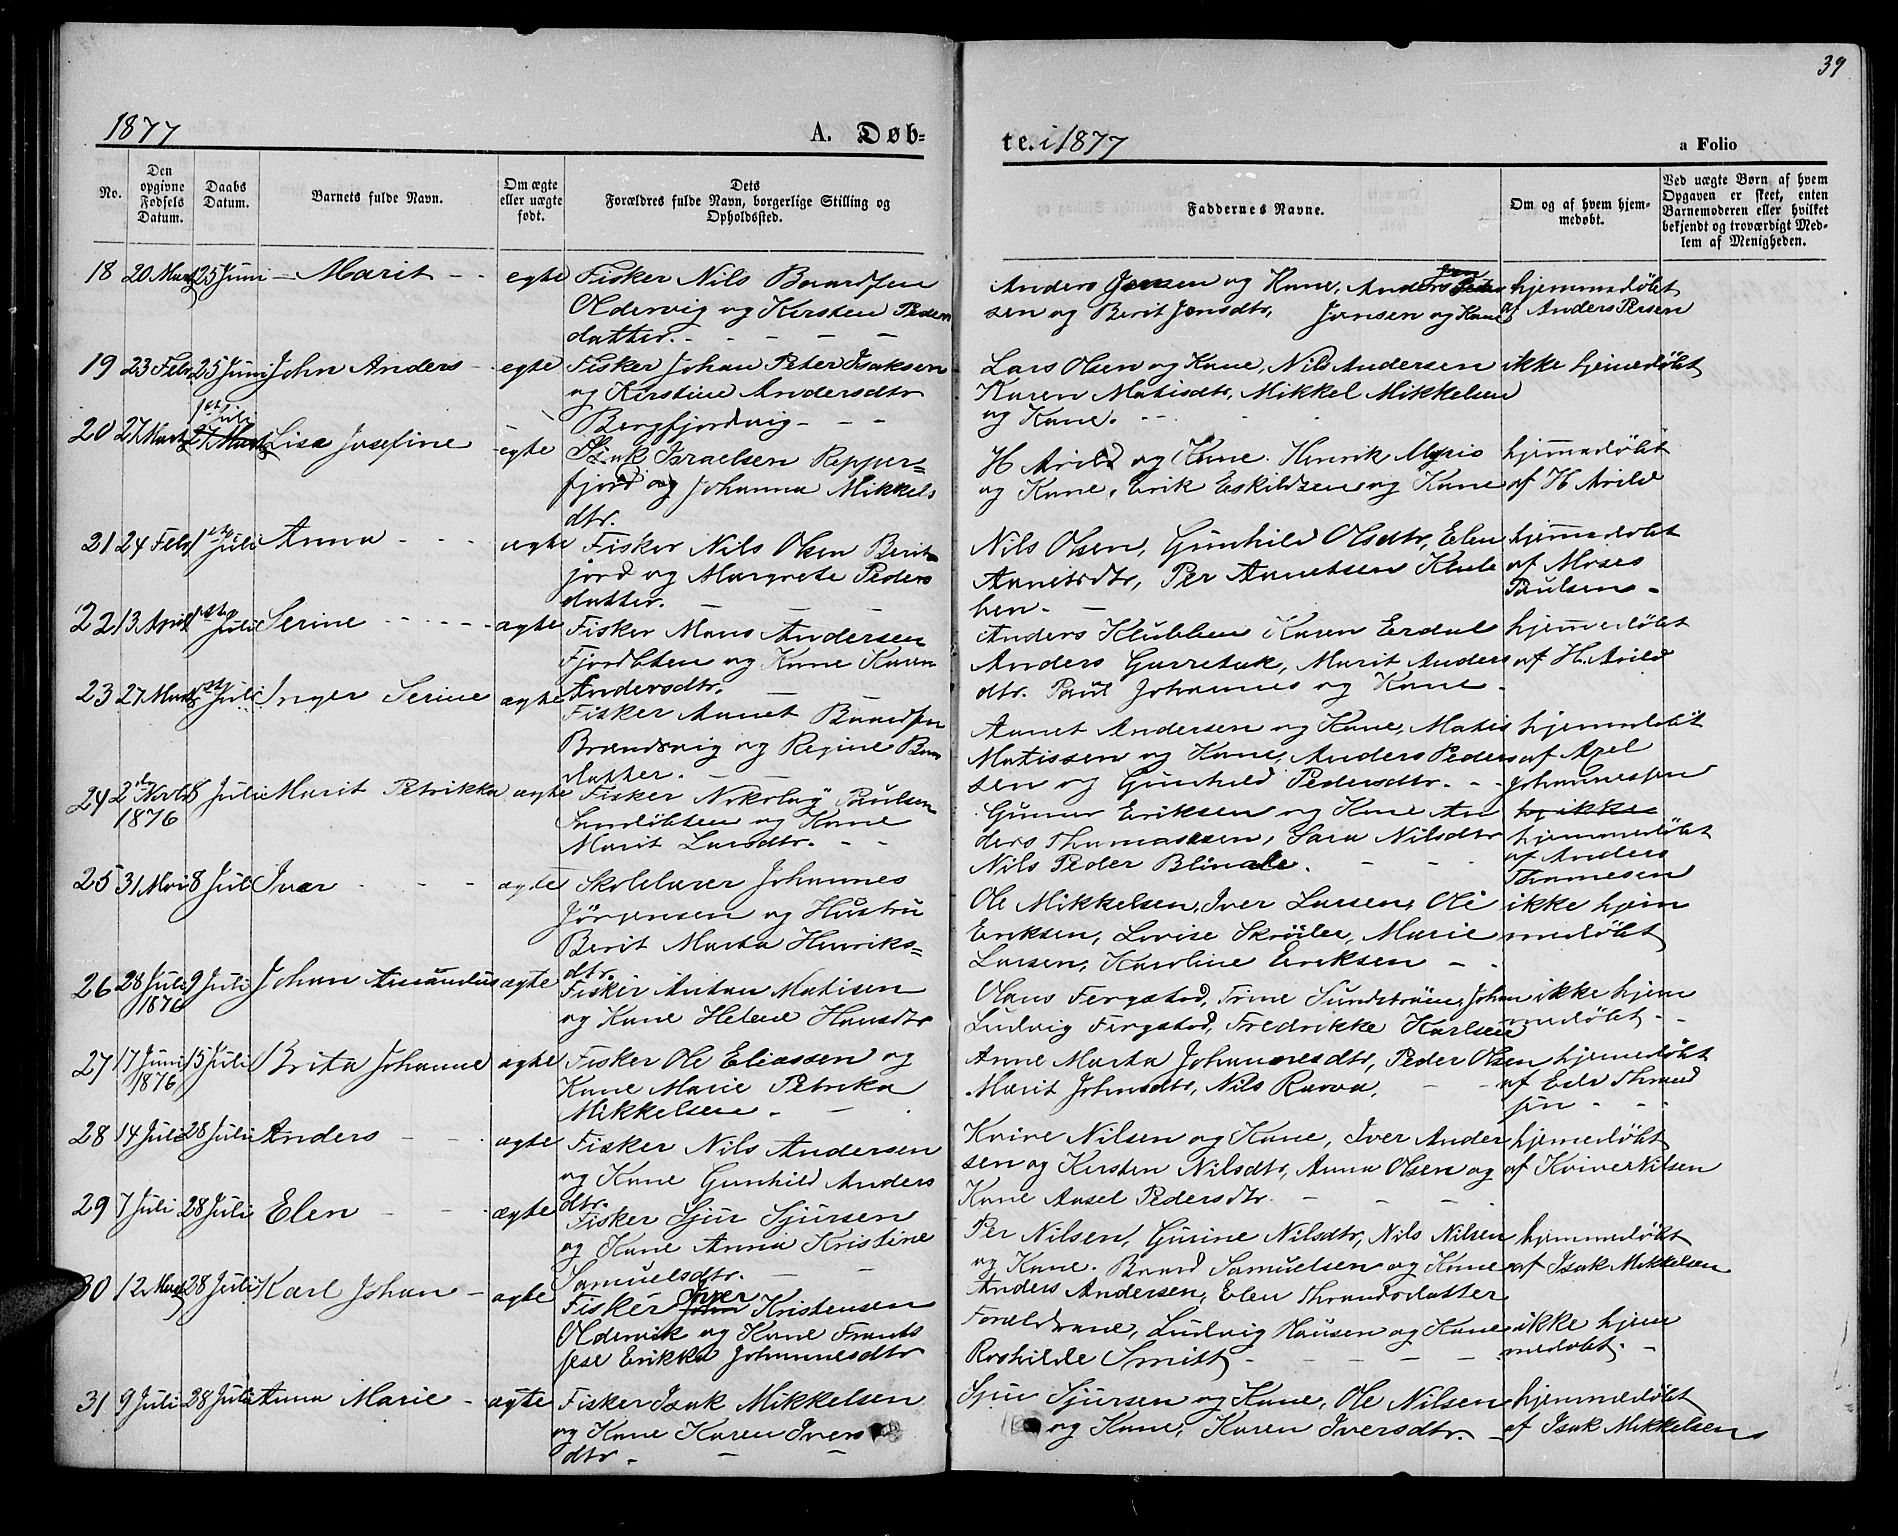 39
1877
A. Døb-
te. i 1877
a Folio
No.
Den opgivne Fødsels Datum.
Daabs Datum.
Barnets fulde Navn.
Om ægte eller uægte født.
Dets Forældres fulde Navn, borgerlige Stilling og Opholdssted.
Faddernes Navne.
Om og af hvem hjem-
medøbt.
Ved uægte Børn af hvem
Opgaven er skeet, enten
Barnemoderen eller hvilket
bekjendt og troværdigt Med-
lem af Menigheden.
18 20 Marts 25 Juni - Marit - - egte Fisker Nils Baardsen
Oldervig og Kirsten Peders
datter. - - - -
Anders Jensen og Kone, Anders
sen og Berit Jonsdtr, Jonsen og Kone
hjemmedøbt
af Anders Persen
19 23 Febr 25 Juni John Anders - egte Fisker Johan Peter Isaksen
og Kirstine Andersdtr
Bergfjordvig - - -
Lars Olsen og Kone, Nils Andersen
Karen Matisdtr, Mikkel Mikkelsen
og Kone. - -
ikke hjemedøbt
20 27 Marts 1ste Juli Lisa Josefine - egte Isak Israelsen Repper=
fjord og Johanna Mikkels
dtr.
H Arild og Kone. Henrik
og Kone, Erik Eskildsen og Kone
hjemmedøbt
af H Arild
21 24 Febr 1ste Juli Anna - - - ægte Fisker Nils Olsen Berit
jord og Margrete Peders
datter. - -
Nils Olsen, Gunhild Olsdtr, Elen
Aanetsdtr, Per Aanetsen Klub
ben. -
hjemmedøbt
af Moses
Paulsen -
22 13 April 1ste Juli Serine - - - - ægte Fisker Mons Andersen
Fjordbten og Kone Karen
Andersdtr. - -
Anders Klubben Karen Erdal
Anders Garretak, Marit Anders
dtr. Paul Johannes og Kone -
hjemmedøbt
af H. Arild
23 27 Marts 1ste Juli Inger Serine ægte Fisker Aanet Baardsen
Brændsvig og Regine
datter. - -
Aanet Andersen og Kone, Matis
Matissen og Kone, Anders Peders
sen og Gunhild Pedersdtr. - -
hjemmedøbt
af Axel
Johannessen
24 2den Novbr 1876 8 Juli Marit Petrikka ægte Fisker Nokolay Paulsen
Sandøbten og Kone
Marit Larsdtr. - -
Gunner Eriksen og Kone An
ders Thomassen, Sara Nilsdtr
Nils Peder Blinde. - - -
hj ikke
hjemmedøbt
af Anders
Thomesen
25 31 Mai 8 Juli Ivar - - - ægte Skolelærer Johannes
Jörgensen og Hustru
Berit Marta Henriks=
dtr.
Ole Mikkelsen, Iver Larsen, Ole
Eriksen, Lovise Skröiler, Marie
Larsen, Karoline Eriksen - -
ikke hjem
medøbt
26 28 Juli 1876 9 Juli Johan Amandus ægte Fisker Anton Matisen
og Kone Helene Hansdtr
Olaus Fergstad, Trine Sundström, Johan
Ludvig Fergstad, Fredrikke Karlsen
ikke hjem
medøbt - -
27 17 Juni 1876 15 Juli Brita Johanne ægte Fisker Ole Eliassen og
Kone Marie Petrika
Mikkelsen - -
Anne Marta Johannesdtr, Peder Olsen
Marit Johnsdtr, Nils Ravna. - -
hjemedøbt
af Thrond
sen - -
28 14 Juli 28 Juli Anders - - ægte Fisker Nils Andersen
og Kone Gunhild Anders
dtr.
Kvive Nilsen og Kone, Iver Ander
sen og Kirsten Nilsdtr, Anna Olsen og
Kone Aasel Pedersdtr. - - -
hjemedøbt
af Kvive Nilsen
29 7 Juli 28 Juli Elen - - ægte Fisker Sjur Sjursen
og Kone Anna Kristine
Samuelsdtr. - -
Per Nilsen, Gurine Nilsdtr, Nils Nilsen
og Kone. Baard Samuelsen og Kone
Anders Andersen, Elen Throndsdatter
hjemmedøbt
af Isak Mikkelsen
30 12 Marts 28 Juli Karl Johan - ægte Fisker Iver Kristensen
Oldervik og Kone Frants
sese Erikka Johannesdtr
Foreldrene, Ludvig Hansen og Kone
Roshilde Smitt - - - - -
ikke hjem
medøbt. -
31 9 Juli 28 Juli Anna Marie - ægte Fisker Isak Mikkelsen
og Kone Karen Ivers
dtr - - -
Sjur Sjursen og Kone, Ole Nilsen
og Kone, Karen Iversdtr. -
hjemmedøbt
af Isak Mikkelsen